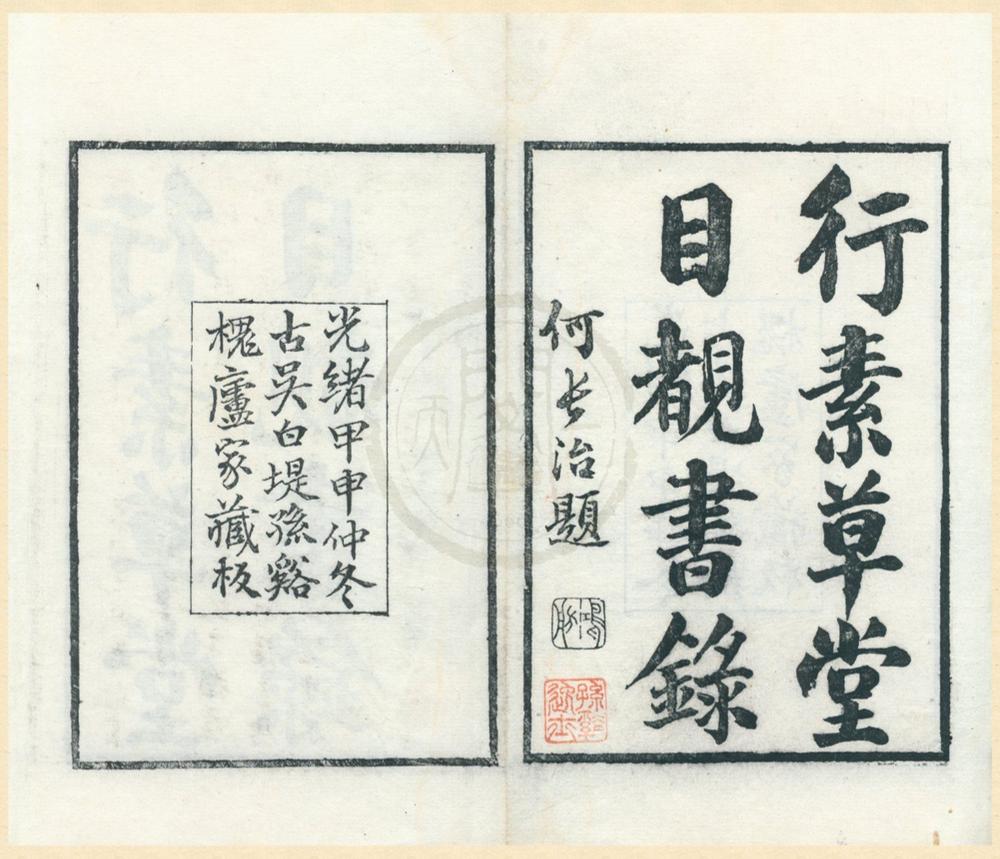 行素草堂
目覩書錄
何長治題
光緒甲申仲冬
古吳白堤孫谿
槐廬家藏板